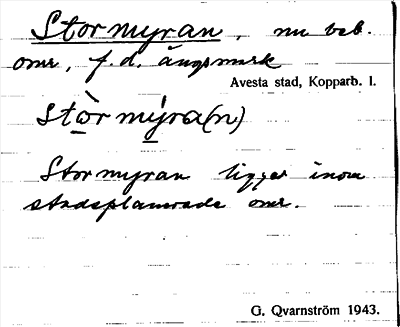 Stormyran, nu beb.
omr, f.d. ängsmark
Avesta stad, Kopparb. l.
stòr mýra(n)
Stormyran ligger inom
stadsplanerade omr.
G. Qvarnström 1943.